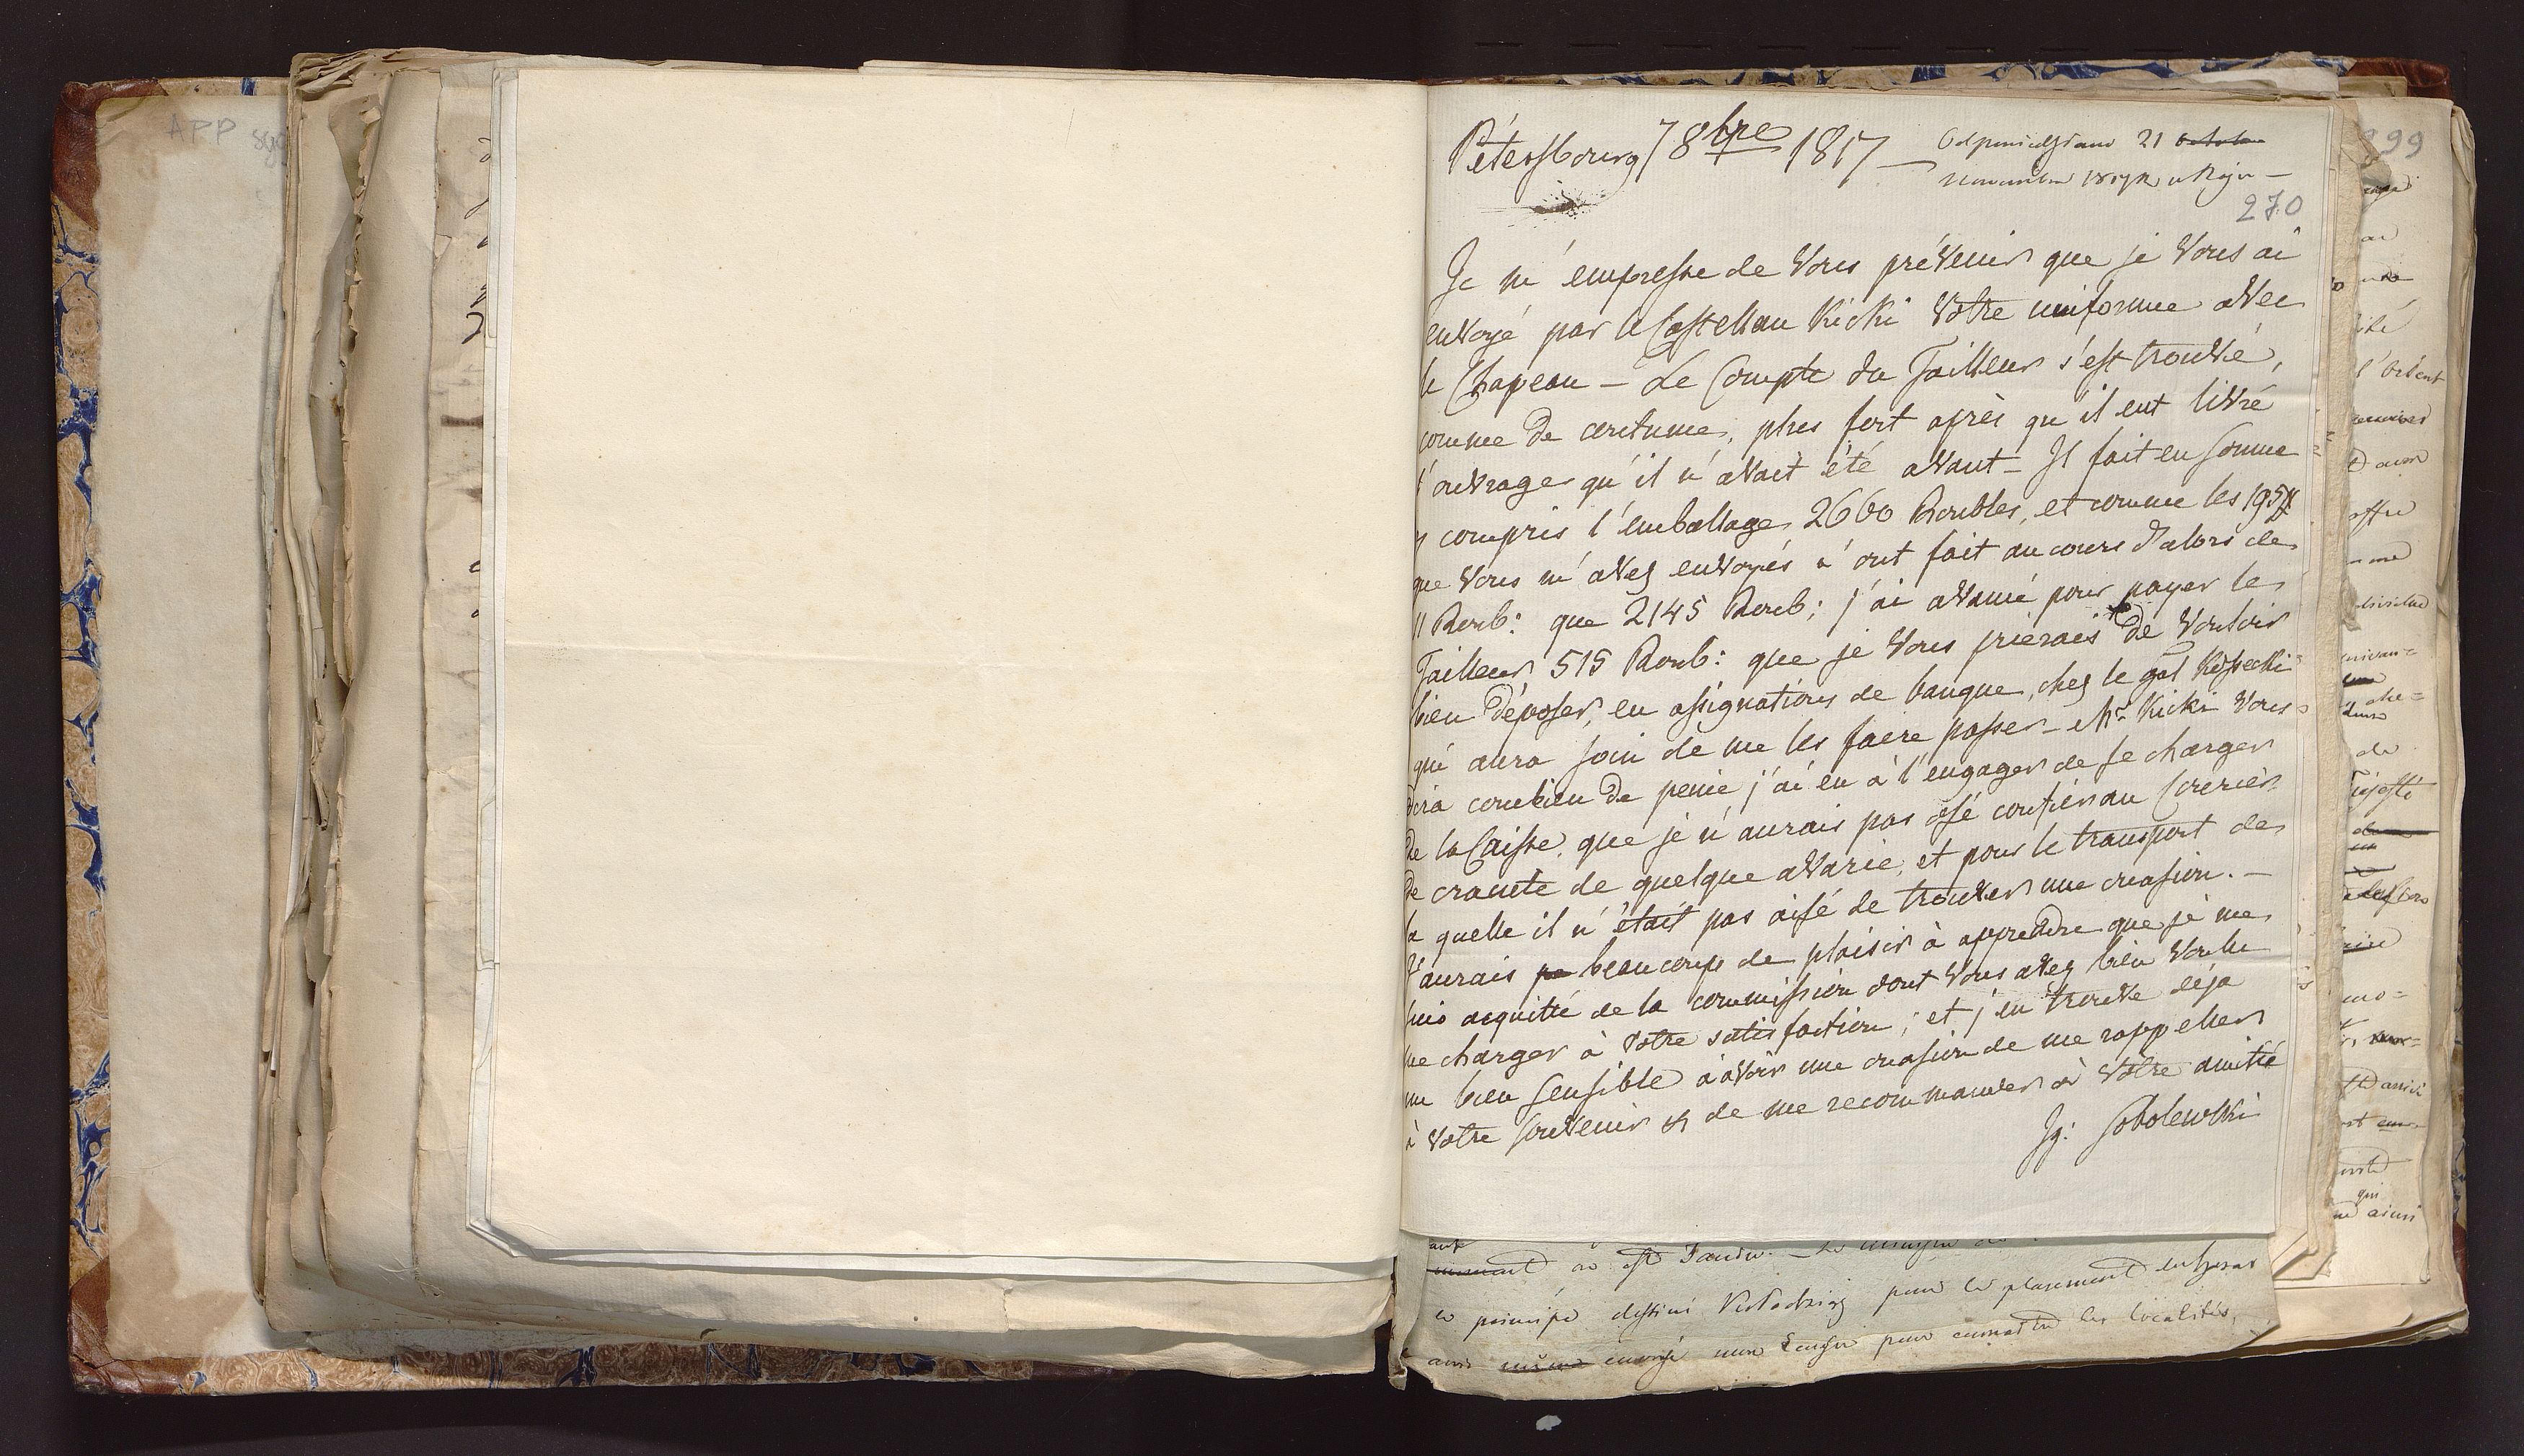 APP
Pétersbourg 7 8bre 1817 —
Odpowiedziano 21 octobra
novembra 1817 R w Rzju —
270
Je m'empresse de Vous prévenir que je Vous ai
envoyé par le Castellan Kicki Votre uniforme avec
le Chapeau — Le Compte du Tailleur s'est trouvé,
comme de coutume, plus fort après qu'il eut livré
l'ouvrage qu'il n'avait été avant — Il fait en somme
y compris l'emballage 2660 Roubles, et comme les 195 #
que Vous m'avez envoyés n'ont fait au cours d'alors de
11 Roub: que 2145 Roub; j'ai avancé pour payer le
Tailleur 515 Roub: que je Vous prierais de vouloir
bien déposer, en assignations de banque, chez le gal Kossecki
qui aura soin de me les faire passer — Mr Kicki Vous
dira combien de peine j'ai eu à l'engager de se charger
de la Caisse, que je n'aurais pas osé confier au Courier
de crainte de quelque avarie, et pour le transport de
la quelle il n'était pas aisé de trouver une occasion. —
J'aurais beaucoup de plaisir à apprendre que je me
suis acquitté de la commission dont Vous avez bien voulu
me charger à Votre satisfaction; et j'en trouve déja
un bien sensible à avoir une occasion de me rappeller
à Votre souvenir & de me recommander à Votre amitié
Ig: Sobolewski
le principe destiné pour le placement
avis même envoyé mon pour connaitre les localités,
99
l'Orient
offre
de
qui
ainsi